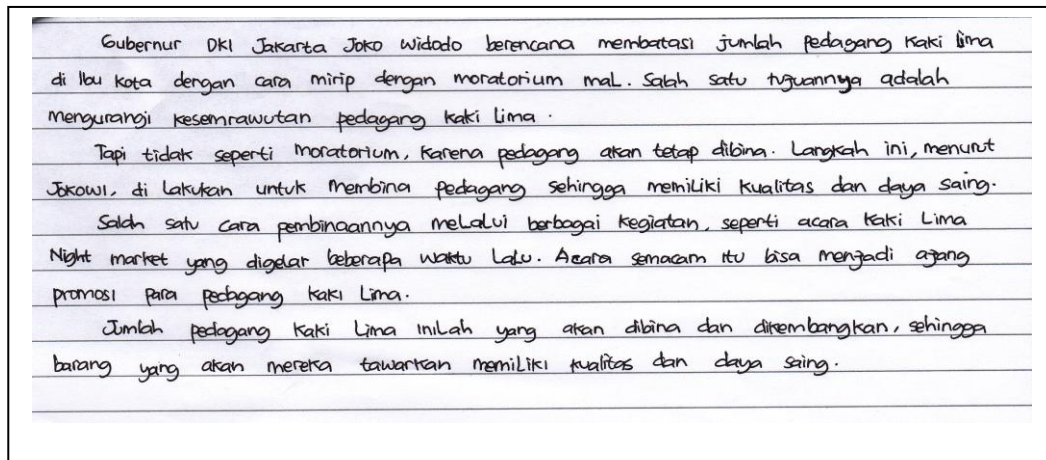 Gubernur DKI Jakarta Joko Widodo berencana membatasi jumlah pedagang kaki lima
di Ibu kota dengan cara mirip dengan moratorium mal. Salah satu tujuannya adalah
mengurangi kesemrawutan pedagang kaki lima.
Tapi tidak seperti moratorium, karena pedagang akan tetap dibina. Langkah ini, menurut
Jokowi, di lakukan untuk membina pedagang sehingga memiliki kualitas dan daya saing.
Salah satu cara pembinaannya melalui berbagai kegiatan, seperti acara kaki Lima
Night market yang digelar beberapa waktu lalu. Acara semacam itu bisa menjadi ajang
promosi para pedagang kaki Lima.
Jumlah pedagang kaki Lima inilah yang akan dibina dan dikembangkan, sehingga
barang yang akan mereka tawarkan memiliki kualitas dan daya saing.